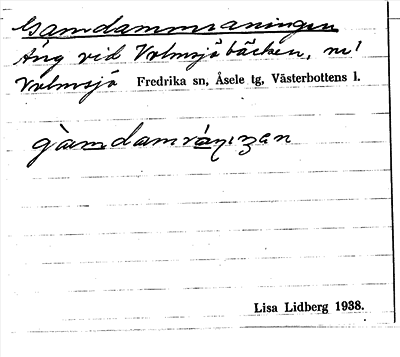 Gamdammraningen
Äng vid Volmsjöbäcken, m¹
Volmsjö Fredrika sn, Åsele tg, Västerbottens l.
Lisa Lidberg 1938.